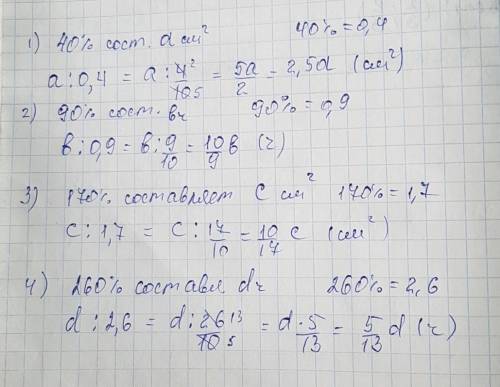 1) 40% сост. a см² 40% = 0,4
a : 0,4 = a : 4²/10 5 = 5a/2 = 2,5a (см²)
2) 90% сост. вч 90% = 0,9
в : 0,9 = в : 9/10 = 10/9 в (ч)
3) 170% составляет C см² 170% = 1,7
C : 1,7 = C : 17/10 = 10/17 C (см²)
4) 260% составл dч 260% = 2,6
d : 2,6 = d : 26 13/10 5 = d · 5/13 = 5/13 d (ч)